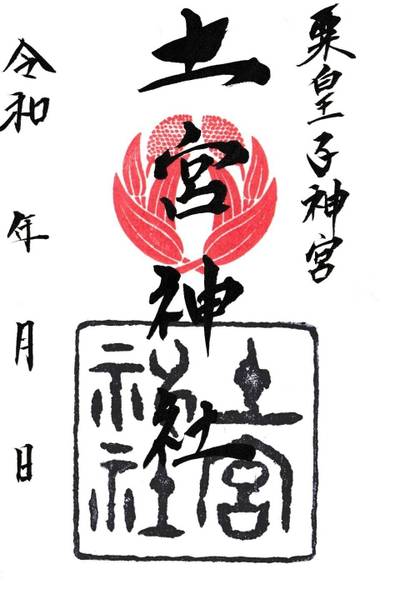 粟皇子神宮
土宮神社
令和 年 月 日
土宮
神社